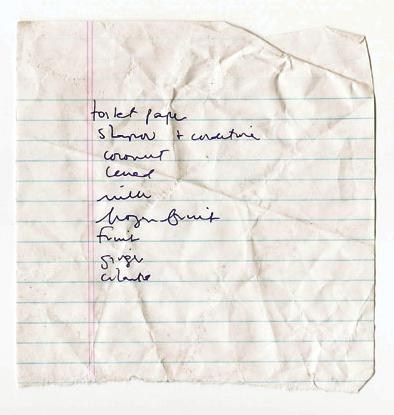 toilet paper
shampoo + conditioner
coconut
cereal
milk
frozen fruit
fruit
ginger
cilantro